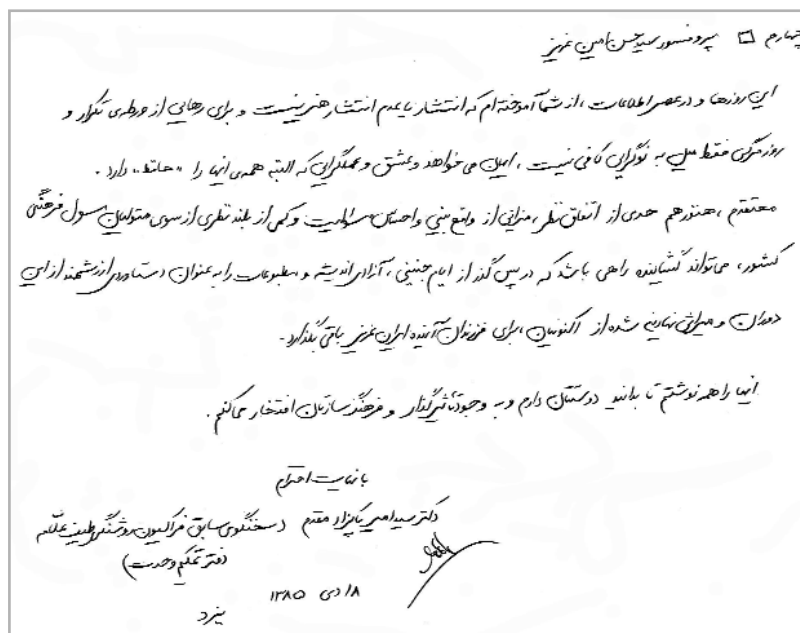 چهارم □ پروفسور سید حسن امین عزیز
این روزها و در عصر اطلاعات، از شما آموخته‌ام که انتشار یا عدم انتشار هنر نیست و برای رهایی از ورطه‌ی تکرار و
روزمرگی فقط میل به نوگرایی کافی نیست، ایمان می‌خواهد و عشق و عملگرایی که البته همه‌ی اینها را «حافظ» دارد.
معتقدم، هنوز هم حدی از اتفاق نظر، میزانی از واقع بینی و احساس مسئولیت و کمی از بلند نظری از سوی متولیان مسئول فرهنگی
کشور، می‌تواند گشاینده راهی باشد که در پس گذر از ایام جنینی، آزادی اندیشه و مطبوعات را به عنوان دستاوردی ارزشمند از این
دوران و میراثی نهادینه شده از اکنونیان، برای فرزندان آینده ایران عزیز باقی بگذارد.
اینها را همه نوشتم تا بدانید دوستتان دارم و به وجود تاثیرگذار و فرهنگ‌سازتان افتخار می‌کنم.
با نهایت احترام
دکتر سید امیر مقدم (سخنگوی سابق فراکسیون روشنگری طیف علامه
دفتر تحکیم وحدت)
۱۸ دی ۱۳۸۵
یزد